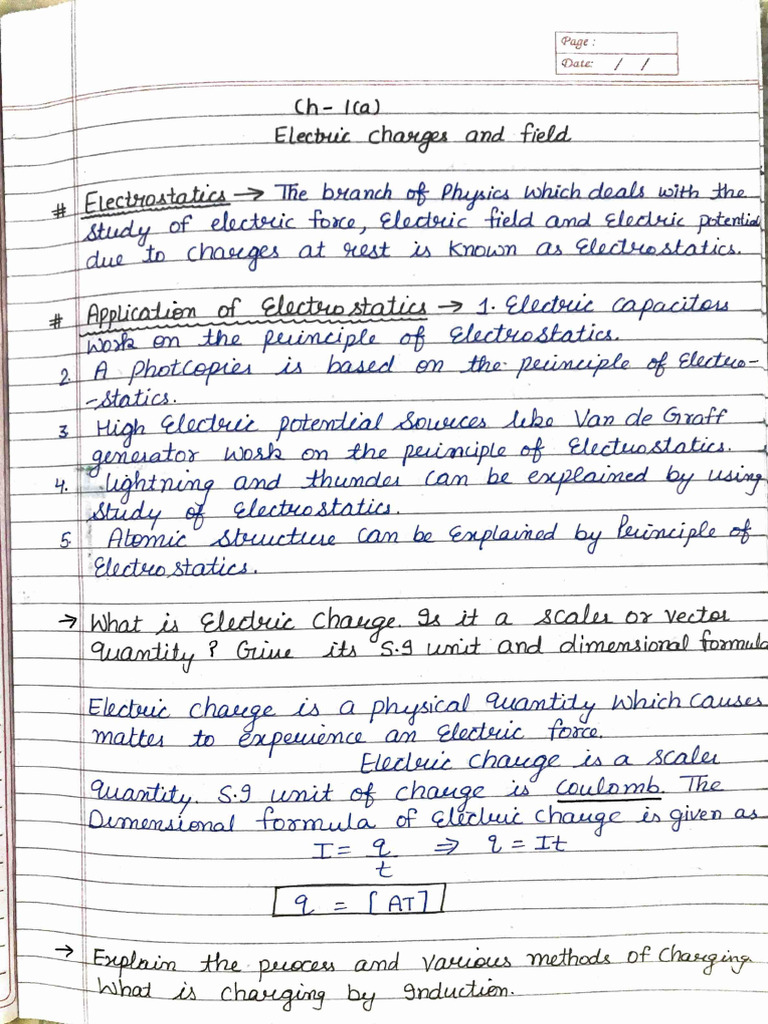 Page :
Date: / /
Ch - 1(a)
Electric charges and field
# Electrostatics → The branch of Physics which deals with the
study of electric force, Electric field and Electric potential
due to charges at rest is known as Electrostatics.
# Application of Electrostatics → 1. Electric capacitors
work on the principle of Electrostatics.
2. A Photcopies is based on the principle of Electro-
-statics.
3 High Electric potential sources like Van de Graff
generator work on the principle of Electrostatics.
4. Lightning and thunder can be explained by using
study of Electrostatics.
5 Atomic structure can be Explained by Principle of
Electrostatics.
→ What is Electric Charge. Is it a scaler or vector
quantity ? Give its S.I unit and dimensional formula
Electric charge is a physical quantity which causes
matter to experience an Electric force.
Electric charge is a scaler
quantity. S.I unit of charge is Coulomb. The
Dimensional formula of Electric charge is given as
I = q/t ⇒ q = It
q = [AT]
→ Explain the process and various methods of Charging.
What is charging by Induction.